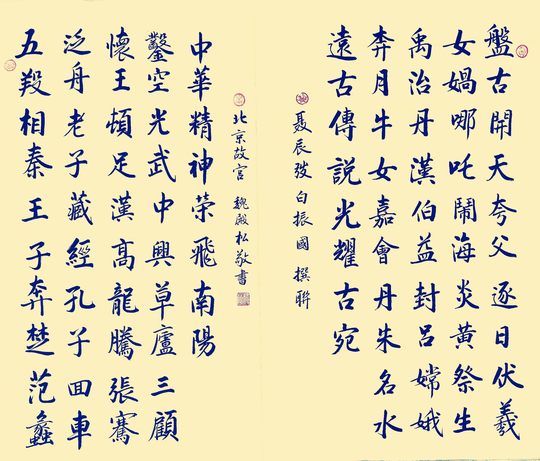 盤古開天夸父逐日伏羲
女媧哪吒鬧海炎黃祭生
禹治丹漢伯益封呂嫦娥
奔月牛女嘉會丹朱名水
遠古傳說光耀古宛
聶辰 白振國 撰聨
五羖相秦王子奔楚范蠡
泛舟老子藏經孔子囬車
懷王頓足漢高龍騰張騫
鑿空光武中興草廬三顧
中華精神榮飛南陽
北京故宮 魏殿松敬書